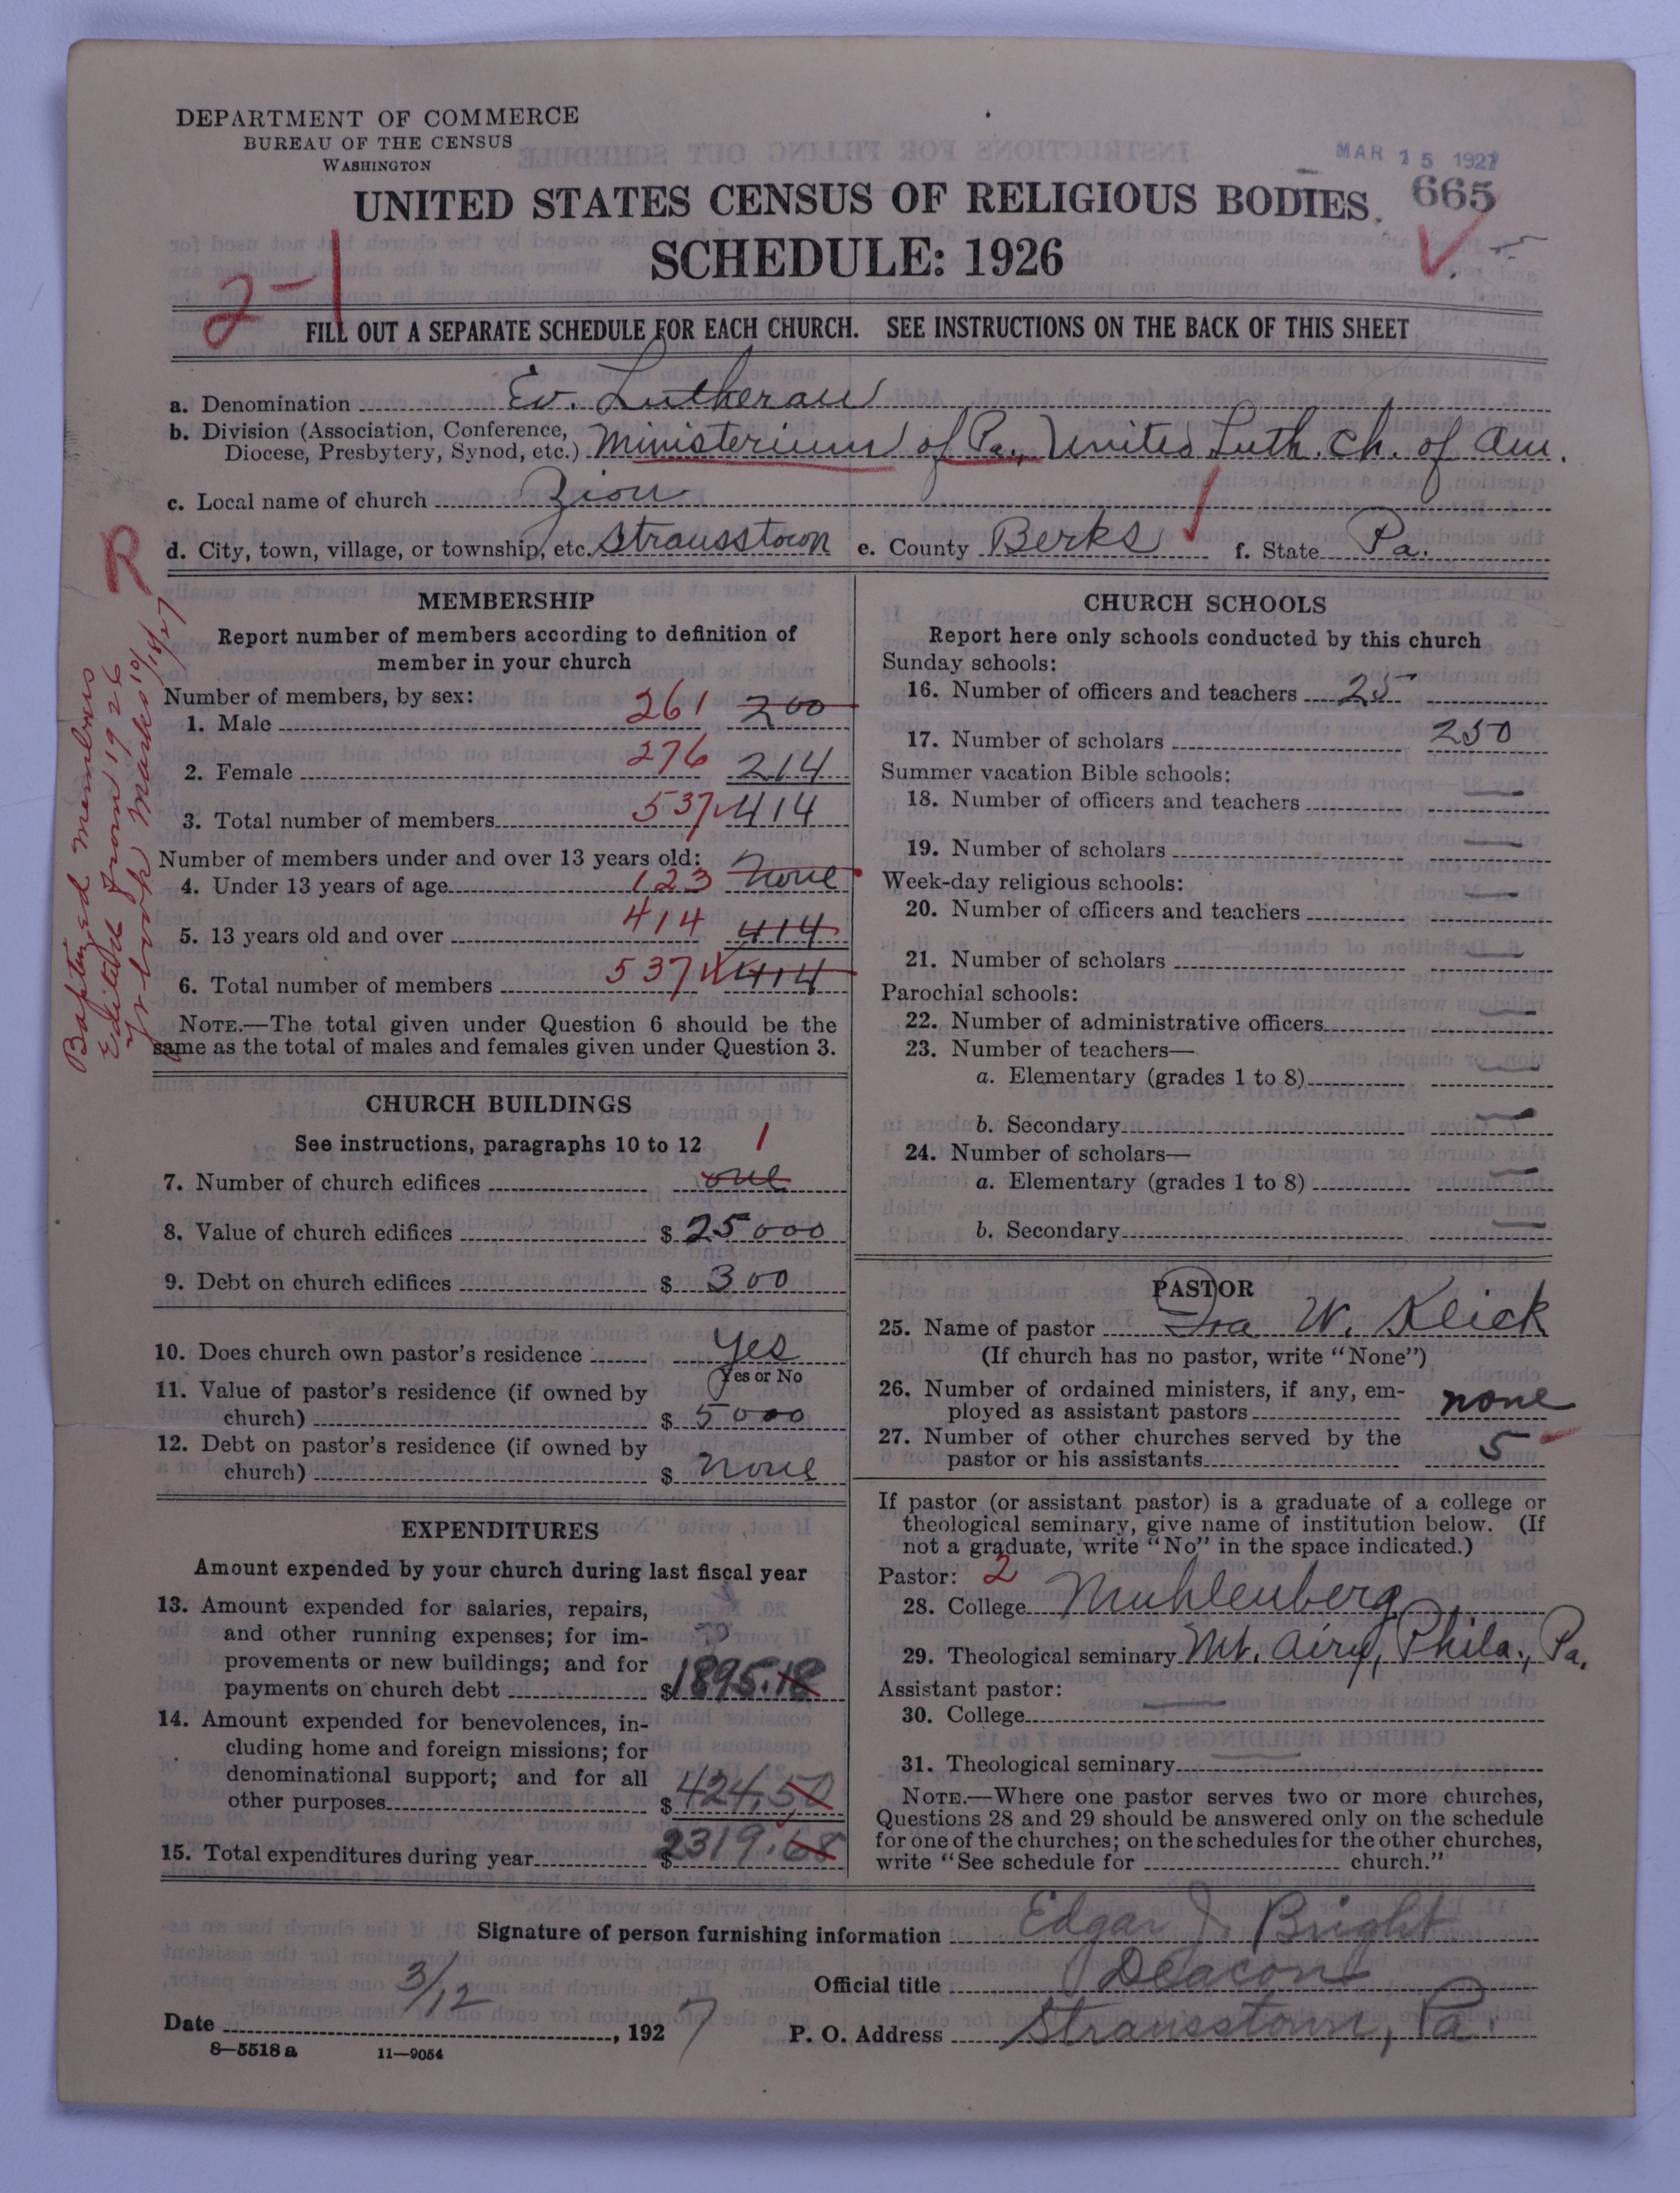 DEPARTMENT OF COMMERCE
BUREAU OF THE CENSUS
WASHINGTON
MAR 15 1927
UNITED STATES CENSUS OF RELIGIOUS BODIES
665
SCHEDULE: 1926
2-1
FILL OUT A SEPARATE SCHEDULE FOR EACH CHURCH. SEE INSTRUCTIONS ON THE BACK OF THIS SHEET
a. Denomination Ev. Lutheran
b. Division (Association, Conference,
Diocese, Presbytery, Synod, etc.) Ministerium of Pa., United Luth. Ch. of Am.
c. Local name of church Zion
d. City, town, village, or township, etc. Strausstown e. County Berks f. State Pa.
R
Baptized members
Edited from 1926
Yr book Marks 10/18/27
MEMBERSHIP
Report number of members according to definition of
member in your church
Number of members, by sex:
1. Male 261 200
2. Female 276 214
3. Total number of members 537 414
Number of members under and over 13 years old:
4. Under 13 years of age 123 none
5. 13 years old and over 414 414
6. Total number of members 537 414
NOTE.—The total given under Question 6 should be the
same as the total of males and females given under Question 3.
CHURCH BUILDINGS
See instructions, paragraphs 10 to 12
1
7. Number of church edifices one
8. Value of church edifices $ 25000
9. Debt on church edifices $ 300
10. Does church own pastor's residence yes
Yes or No
11. Value of pastor's residence (if owned by
church) $ 5000
12. Debt on pastor's residence (if owned by
church) $ none
EXPENDITURES
Amount expended by your church during last fiscal year
13. Amount expended for salaries, repairs,
and other running expenses; for im-
provements or new buildings; and for
payments on church debt $ 1895.18
14. Amount expended for benevolences, in-
cluding home and foreign missions; for
denominational support; and for all
other purposes $ 424.50
15. Total expenditures during year $ 2319.68
CHURCH SCHOOLS
Report here only schools conducted by this church
Sunday schools:
16. Number of officers and teachers 25
17. Number of scholars 250
Summer vacation Bible schools:
18. Number of officers and teachers —
19. Number of scholars —
Week-day religious schools:
20. Number of officers and teachers —
21. Number of scholars —
Parochial schools:
22. Number of administrative officers —
23. Number of teachers—
a. Elementary (grades 1 to 8) —
b. Secondary —
24. Number of scholars—
a. Elementary (grades 1 to 8) —
b. Secondary —
PASTOR
25. Name of pastor Ira W. Klick
(If church has no pastor, write "None")
26. Number of ordained ministers, if any, em-
ployed as assistant pastors none
27. Number of other churches served by the
pastor or his assistants 5
If pastor (or assistant pastor) is a graduate of a college or
theological seminary, give name of institution below. (If
not a graduate, write "No" in the space indicated.)
Pastor: 2
28. College Muhlenberg
29. Theological seminary Mt. Airy, Phila., Pa.
Assistant pastor:
30. College —
31. Theological seminary —
NOTE.—Where one pastor serves two or more churches,
Questions 28 and 29 should be answered only on the schedule
for one of the churches; on the schedules for the other churches,
write "See schedule for church."
Signature of person furnishing information Edgar J. Bright
Official title Deacon
Date 3/12, 1927 P. O. Address Strausstown, Pa.
8—5518a 11—9054